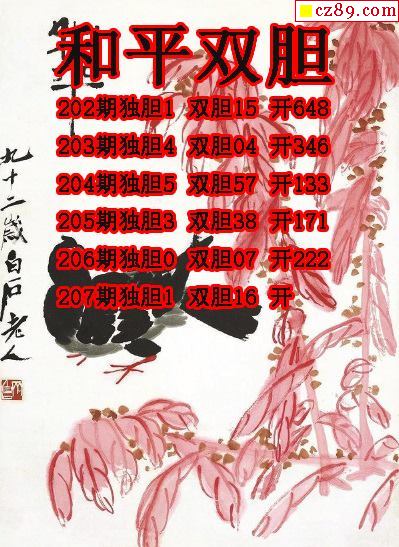 cz89.com
和平双胆
202期独胆1 双胆15 开648
203期独胆4 双胆04 开346
204期独胆5 双胆57 开133
205期独胆3 双胆38 开171
206期独胆0 双胆07 开222
207期独胆1 双胆16 开
九十二岁白石老人